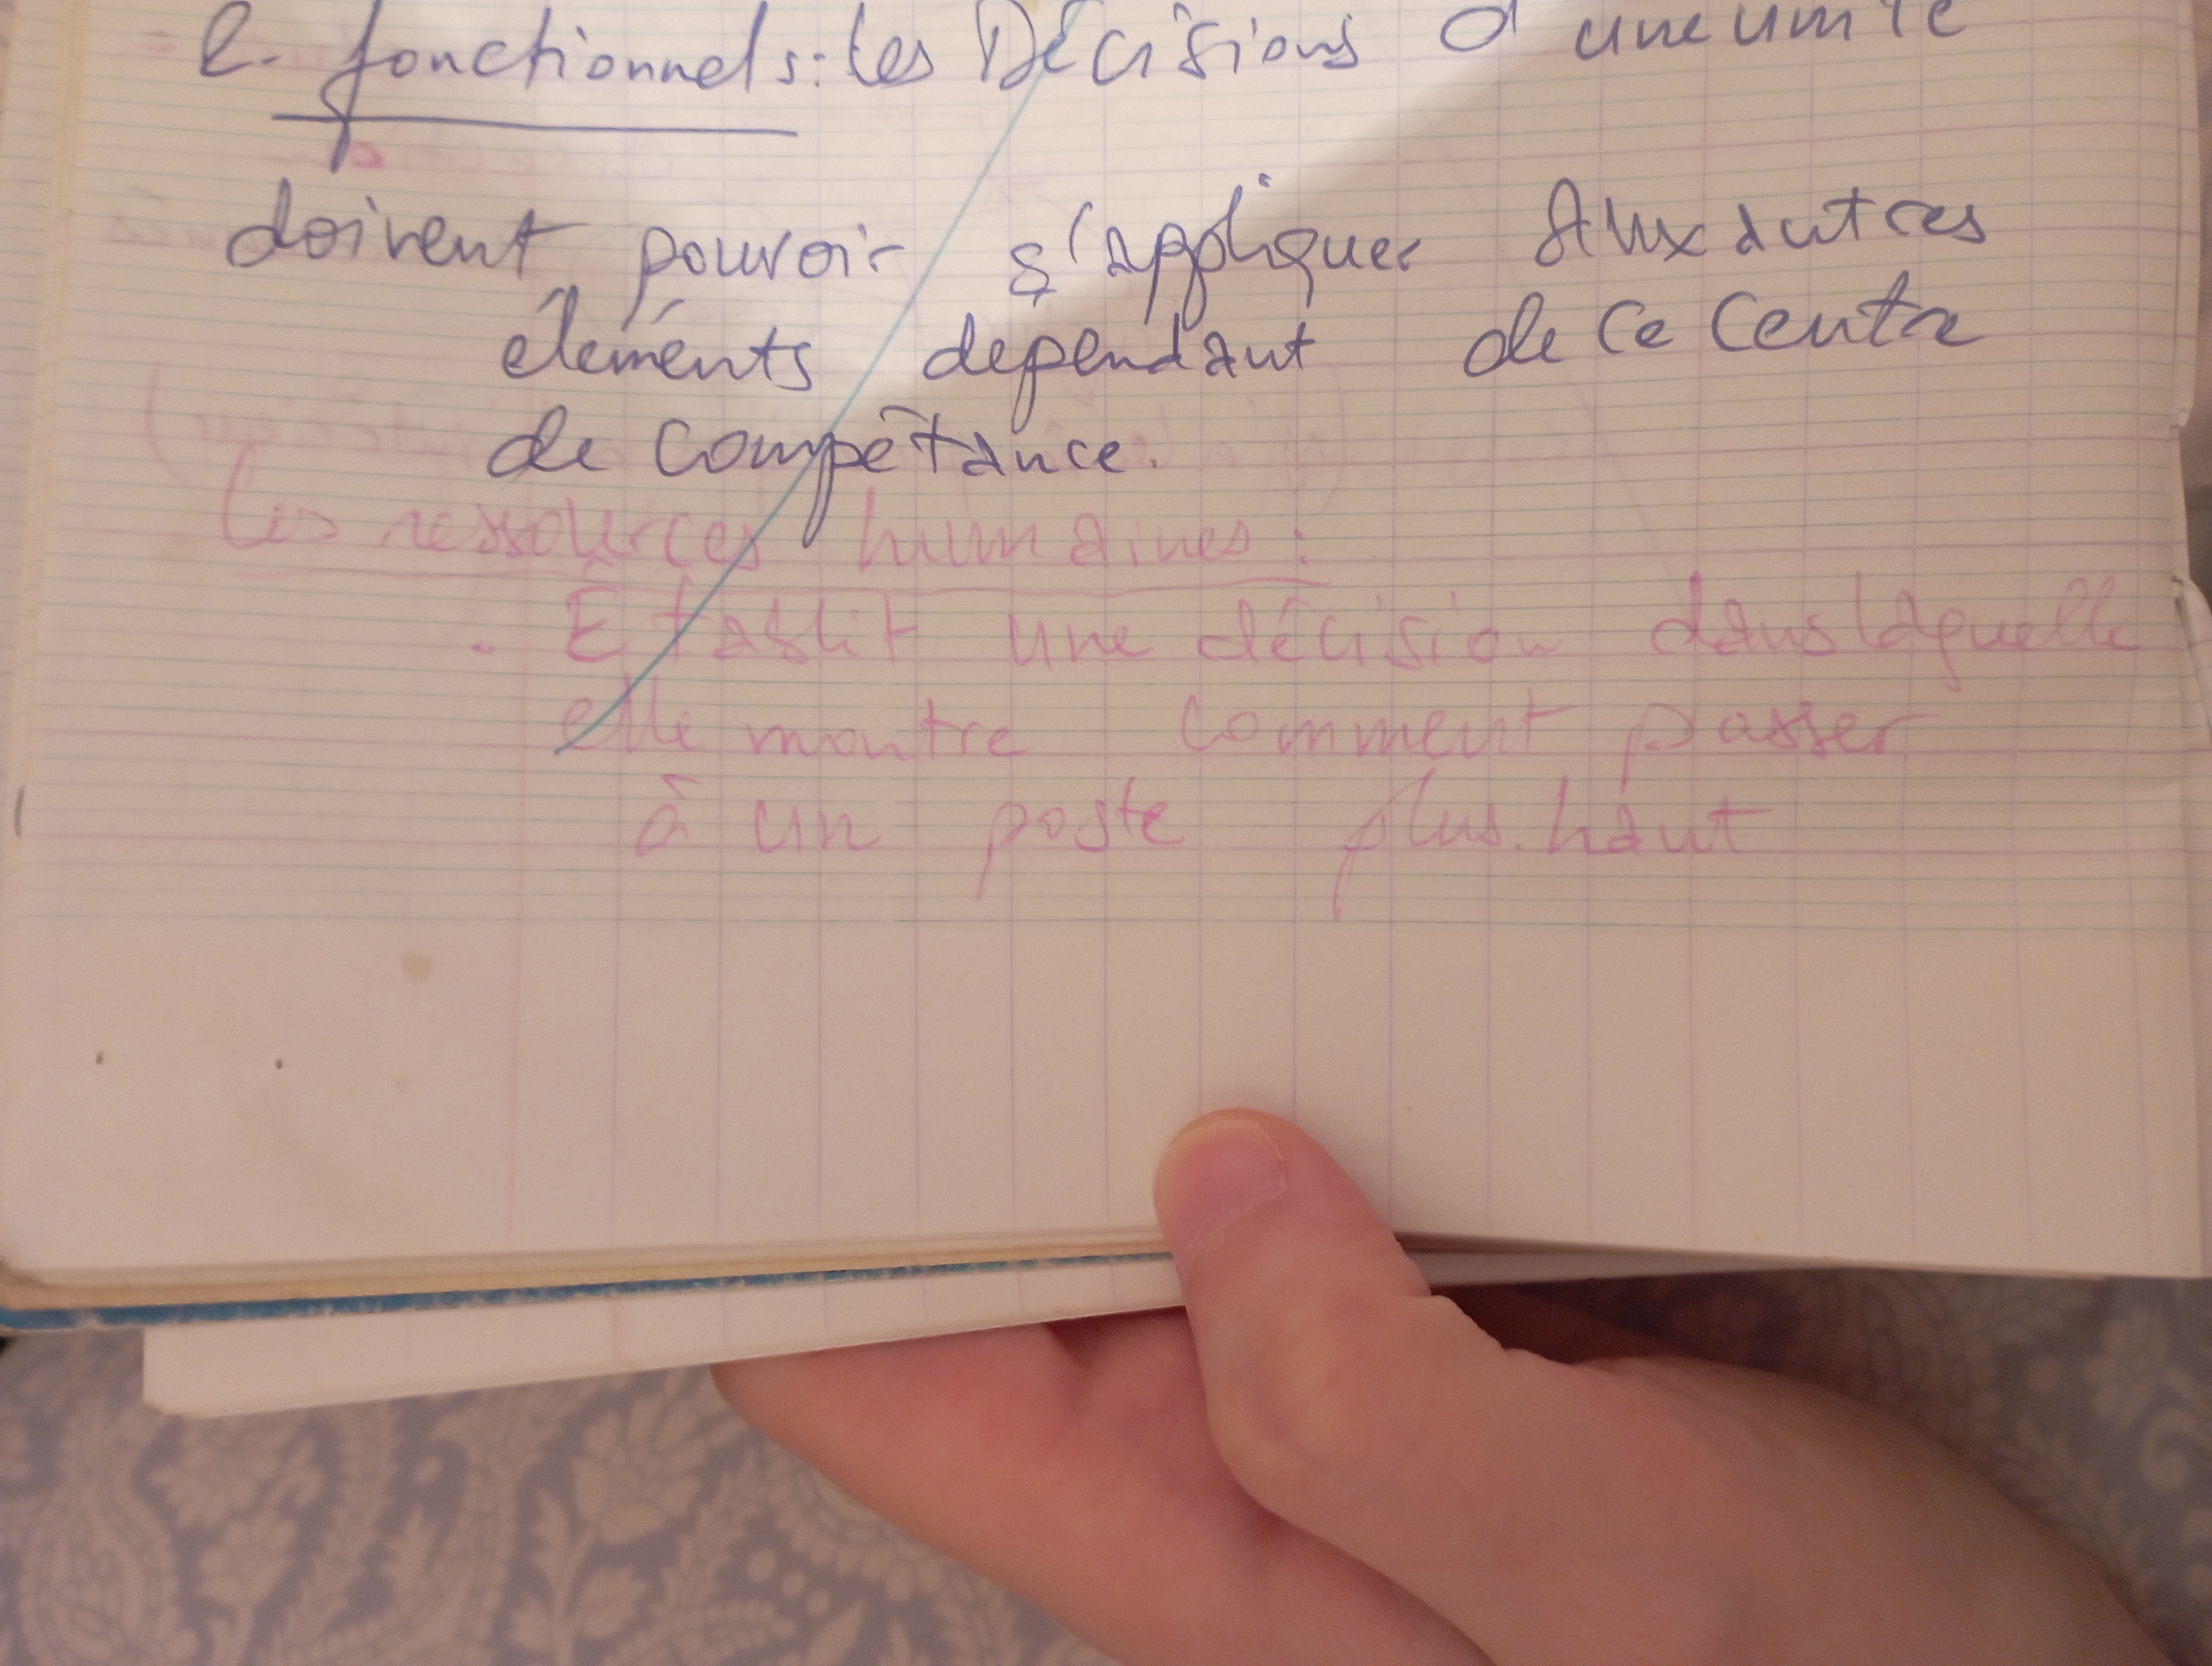 l. fonctionnels: les Décisions d'une unité
doivent pouvoir s'appliquer Aux autres
élements dependant de ce Centre
de Compétance.
les ressources humaines.
. Etablit une décision dans laquelle
elle montre comment passer
à un poste plus haut